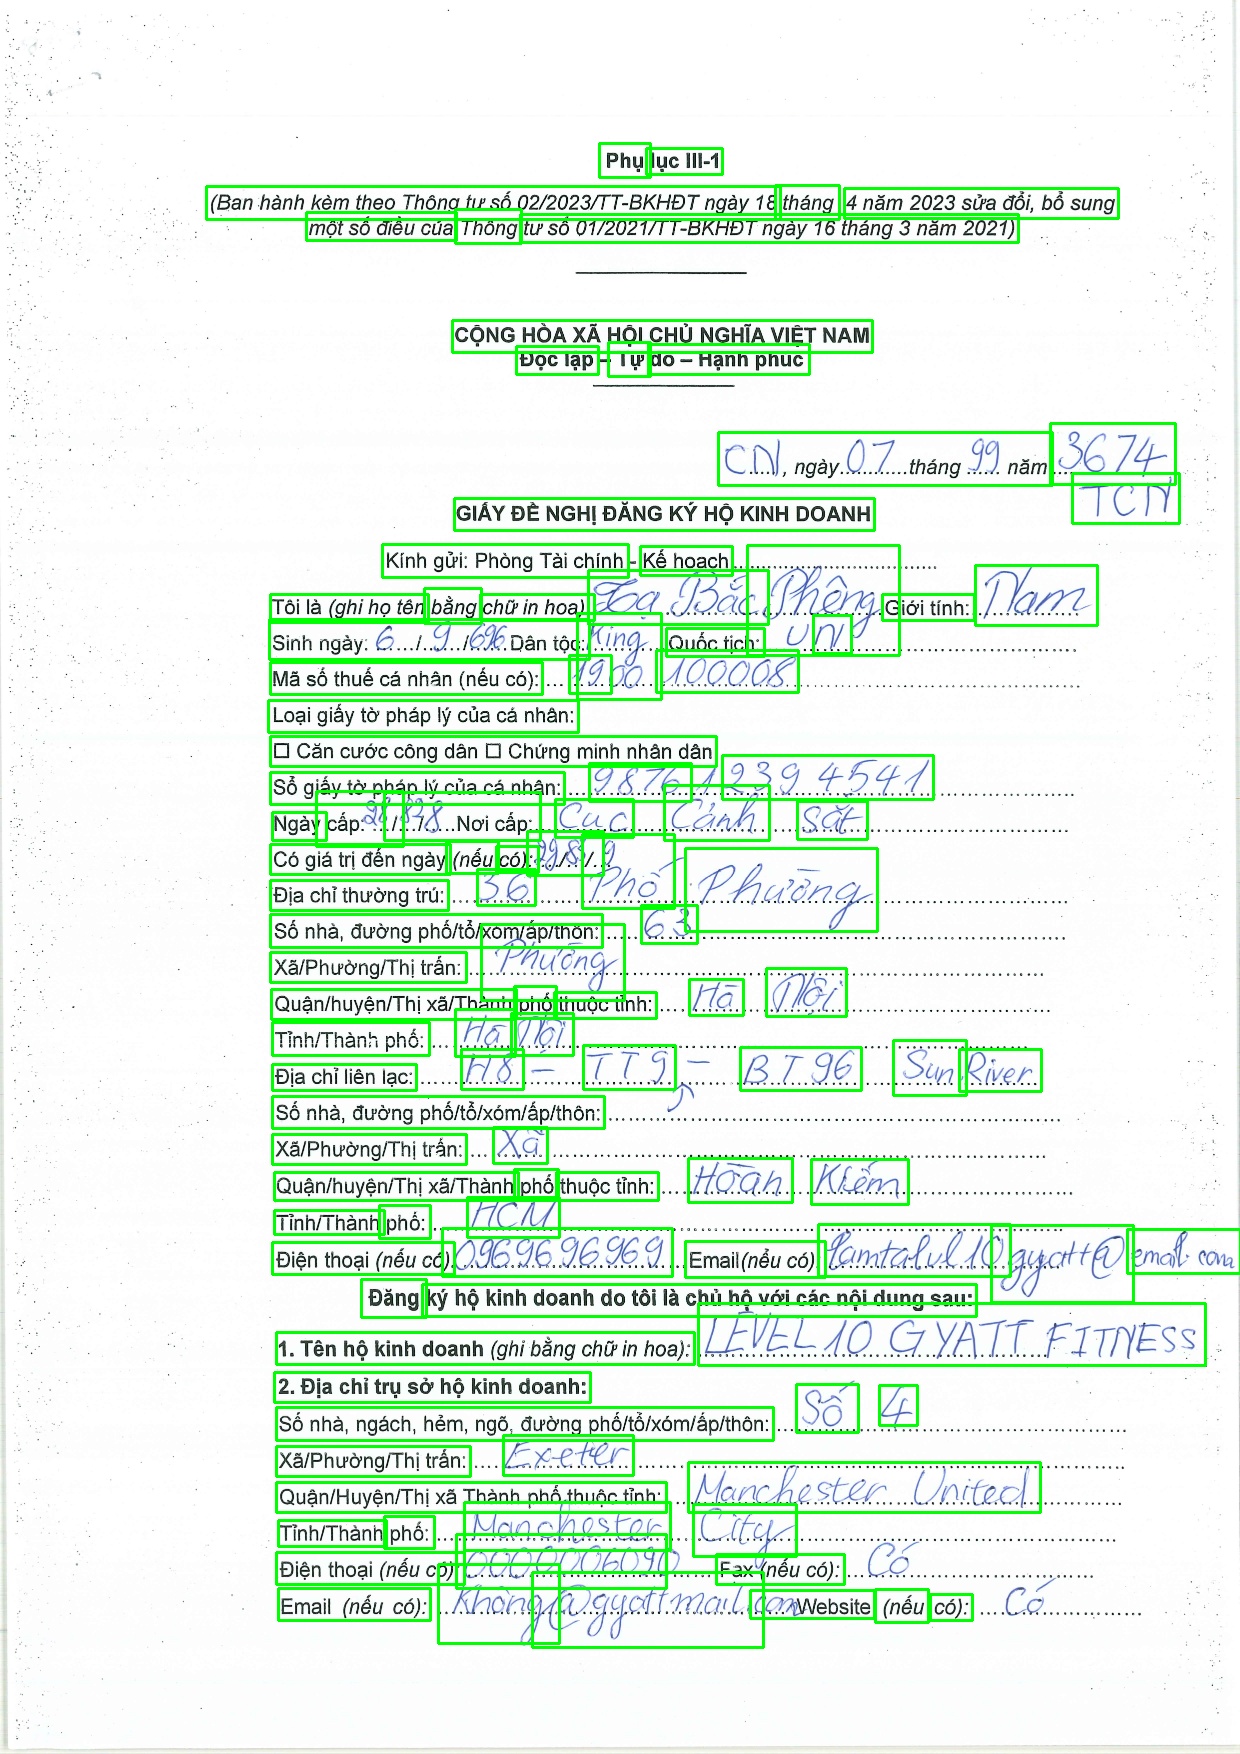 Phụ lục III-1
(Ban hành kèm theo Thông tư số 02/2023/TT-BKHĐT ngày 18 tháng 4 năm 2023 sửa đổi, bổ sung
một số điều của Thông tư số 01/2021/TT-BKHĐT ngày 16 tháng 3 năm 2021)
CỘNG HÒA XÃ HỘI CHỦ NGHĨA VIỆT NAM
Độc lập – Tự do – Hạnh phúc
CN, ngày 07 tháng 99 năm 3674
TCN
GIẤY ĐỀ NGHỊ ĐĂNG KÝ HỘ KINH DOANH
Kính gửi: Phòng Tài chính - Kế hoạch
Tôi là (ghi họ tên bằng chữ in hoa) Tạ Bắc Phông Giới tính: Nam
Sinh ngày: 6 / 9 / 696 Dân tộc: King Quốc tịch: UNI
Mã số thuế cá nhân (nếu có): 1900 100008
Loại giấy tờ pháp lý của cá nhân:
☐ Căn cước công dân ☐ Chứng minh nhân dân
Số giấy tờ pháp lý của cá nhân: 98761239 4541
Ngày cấp: / / Nơi cấp: Cục Cảnh sát
Có giá trị đến ngày (nếu có): / /
Địa chỉ thường trú: 36 Phố Phường
Số nhà, đường phố/tổ/xóm/ấp/thôn: 63
Xã/Phường/Thị trấn: Phường
Quận/huyện/Thị xã/Thành phố thuộc tỉnh: Hà Nội
Tỉnh/Thành phố: Hà Nội
Địa chỉ liên lạc: H8 - TT9 - BT96 Sun River
Số nhà, đường phố/tổ/xóm/ấp/thôn:
Xã/Phường/Thị trấn: Xã
Quận/huyện/Thị xã/Thành phố thuộc tỉnh: Hoàn Kiếm
Tỉnh/Thành phố: HCM
Điện thoại (nếu có): 0969696969 Email(nếu có) iamtalvl10gyatt@email.com
Đăng ký hộ kinh doanh do tôi là chủ hộ với các nội dung sau:
1. Tên hộ kinh doanh (ghi bằng chữ in hoa): LEVEL 10 GYATT FITNESS
2. Địa chỉ trụ sở hộ kinh doanh:
Số nhà, ngách, hẻm, ngõ, đường phố/tổ/xóm/ấp/thôn: Số 4
Xã/Phường/Thị trấn: Exeter
Quận/Huyện/Thị xã Thành phố thuộc tỉnh: Manchester United
Tỉnh/Thành phố: Manchester City
Điện thoại (nếu có) 0000006090 Fax (nếu có): Có
Email (nếu có): không@gyattmail.com Website (nếu có): Có